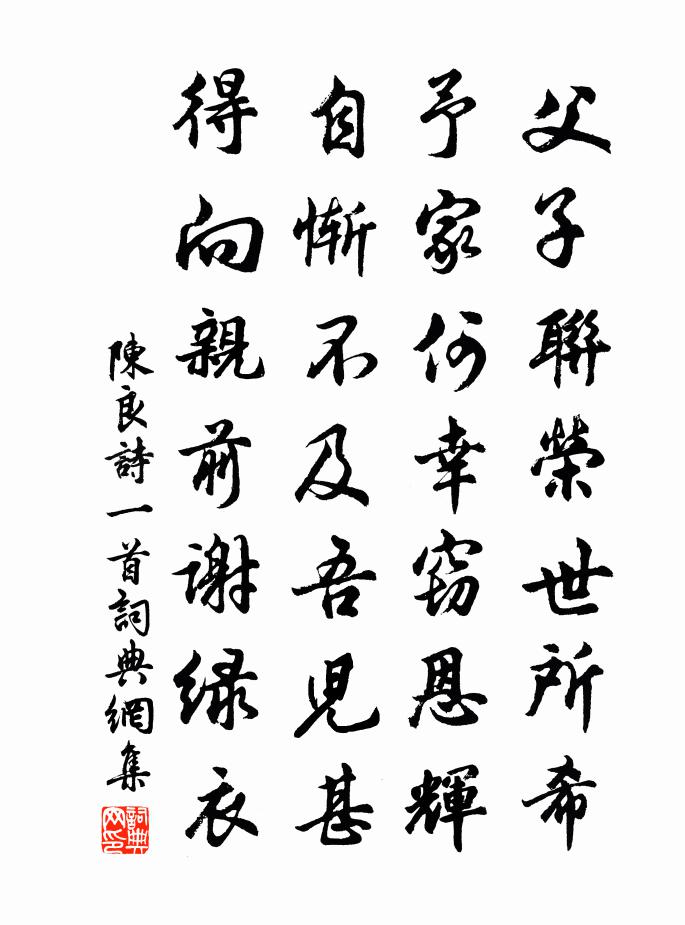 父子聯榮世所希
予家何幸窃恩輝
自慚不及吾児甚
得向親前谢绿衣
陳良詩一首詞典網集
詞典网印